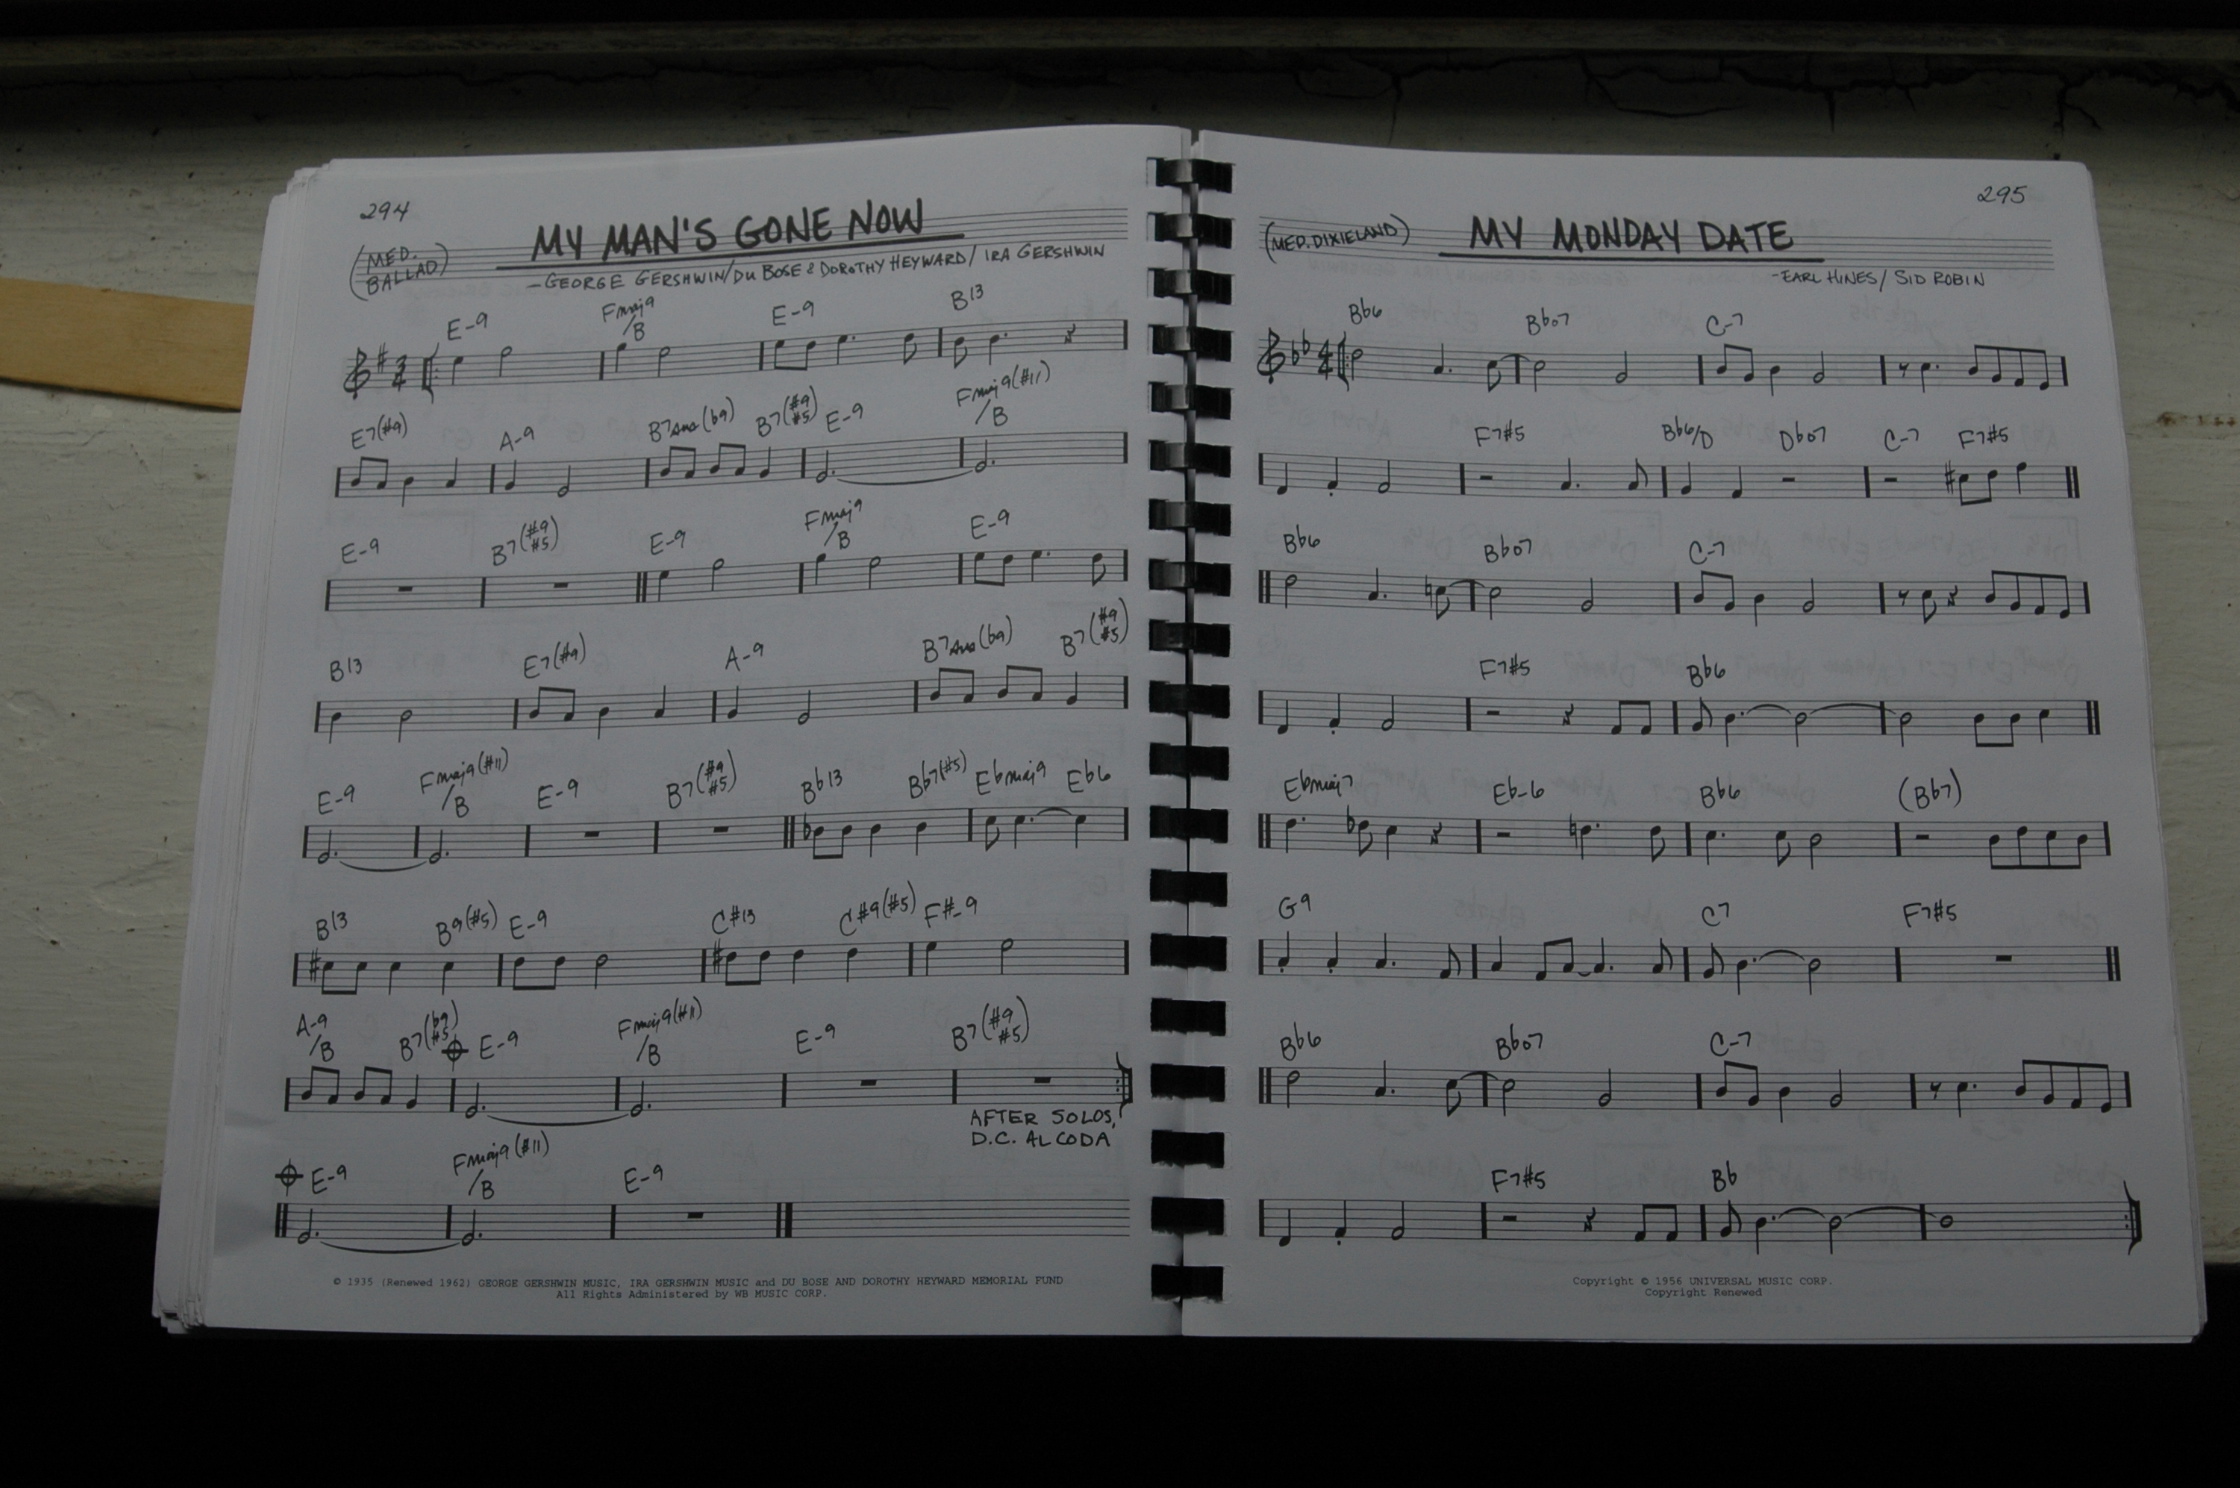 294
(MED. BALLAD)
MY MAN'S GONE NOW
-GEORGE GERSHWIN/DU BOSE & DOROTHY HEYWARD/IRA GERSHWIN
E-9 Fmaj9/B E-9 B13
E7(#9) A-9 B7sus(b9) B7(#9#5) E-9 Fmaj9(#11)/B
E-9 B7(#9#5) E-9 Fmaj9/B E-9
B13 E7(#9) A-9 B7sus(b9) B7(#9#5)
E-9 Fmaj9(#11)/B E-9 B7(#9#5) Bb13 Bb7(#5) Ebmaj9 Eb6
B13 B9(#5) E-9 C#13 C#9(#5) F#-9
A-9/B B7(b9#5) E-9 Fmaj9(#11)/B E-9 B7(#9#5)
AFTER SOLOS,
D.C. AL CODA
E-9 Fmaj9(#11)/B E-9
© 1935 (Renewed 1962) GEORGE GERSHWIN MUSIC, IRA GERSHWIN MUSIC and DU BOSE AND DOROTHY HEYWARD MEMORIAL FUND
All Rights Administered by WB MUSIC CORP.
295
(MED. DIXIELAND)
MY MONDAY DATE
-EARL HINES/SID ROBIN
Bb6 Bbo7 C-7
F7#5 Bb6/D Dbo7 C-7 F7#5
Bb6 Bbo7 C-7
F7#5 Bb6
Ebmaj7 Eb-6 Bb6 (Bb7)
G9 C7 F7#5
Bb6 Bbo7 C-7
F7#5 Bb
Copyright © 1956 UNIVERSAL MUSIC CORP.
Copyright Renewed